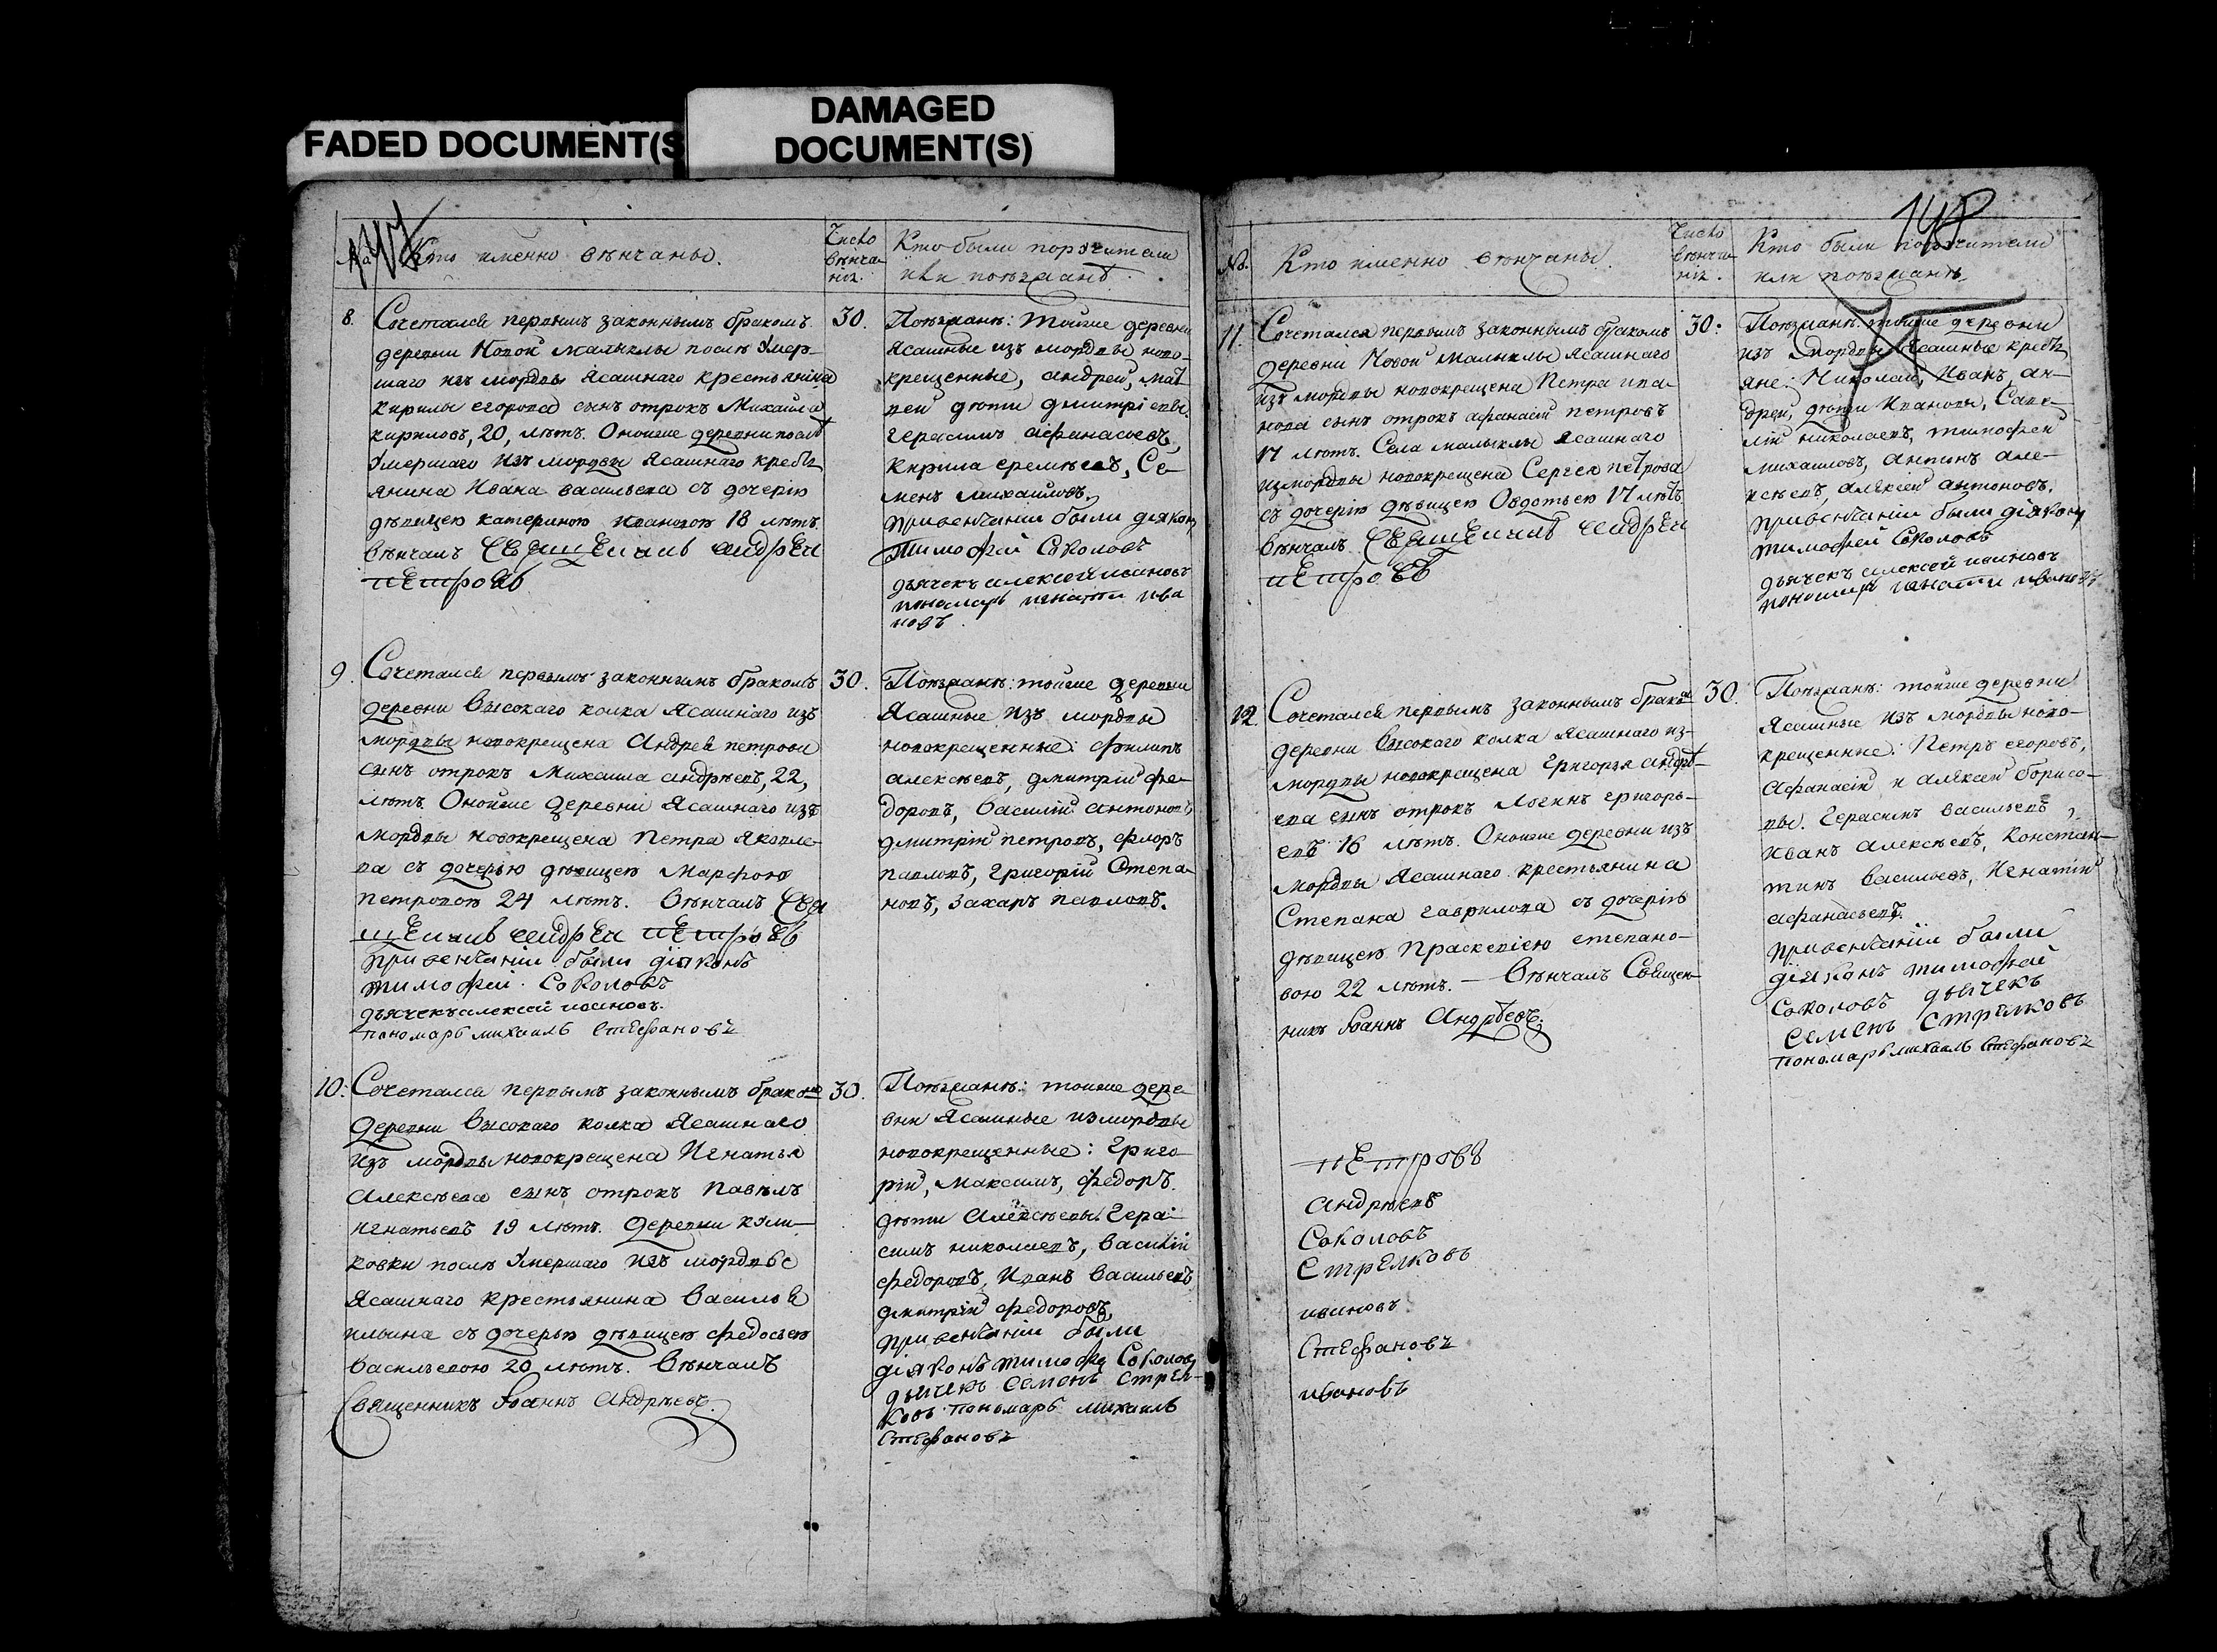 FADED DOCUMENT(S
DAMAGED
DOCUMENT(S)
Кто именно вѣнчаны.
Число
вѣнча
нія.
Кто были поручители
или поѣзжанѣ.
8.
Сочетался первымъ законнымъ бракомъ
деревни Новой Малыклы послѣ умер-
шаго изъ мордвы Ясашнаго крестьянина
кирилы егорова сынъ отрокъ Михаила
кириловъ, 20, лѣтъ. Оной же деревни послѣ
умершаго изъ мордвы Ясашнаго кресть
янина Ивана васильева съ дочерію
дѣвицею катериною Ивановою 18 лѣтъ.
вѣнчалъ свяшенникъ андреи
петровъ
30.
Поѣзжанѣ: тойже деревни
Ясашные изъ мордвы ново-
крещенные, андрей, мат
вей дѣти дмитріевы.
герасимъ афанасьевъ,
кирила еремѣевъ, Се-
менъ михайловъ.
привенчаніи были діяконъ
Тимофей Соколовъ
дьячекъ алексей ивановъ
пономарь игнати ива
новъ.
9.
Сочетался первымъ законнымъ бракомъ
деревни Высокаго колка Ясашнаго изъ
мордвы новокрещена Андрея петрова
сынъ отрокъ Михаила андрѣевъ, 22,
лѣтъ. Оной же деревни Ясашнаго изъ
мордвы новокрещена Петра Яковле-
ва съ дочерью дѣвицею Марфою
петровою 24 лѣтъ. Вѣнчалъ свя
шенникъ андреи петровъ
привенчаніи были діяконъ
тимофей Соколовъ
дьячекъ алексей ивановъ.
пономарь михаилъ стефановъ
30.
Поѣзжанѣ: тойже деревни
Ясашные изъ мордвы
новокрещенные: филипъ
алексѣевъ, дмитрій фе-
доровъ, василій антоновъ,
дмитрій петровъ, флоръ
павловъ, григорій Степа-
новъ, захаръ павловъ.
10.
Сочетался первымъ законнымъ бракомъ
деревни Высокаго колка Ясашнаго
изъ мордвы новокрещена Игнатья
Алексѣева сынъ отрокъ павелъ
игнатьевъ 19 лѣтъ. деревни кули-
ковки послѣ умершаго изъ мордвы
Ясашнаго крестьянина Василья
ильина съ дочерью дѣвицею федосьею
васильевою 20 лѣтъ. Вѣнчалъ
Священникъ Іоаннъ Андрѣевъ.
30.
Поѣзжанѣ: тойже дере-
вни Ясашные из мордвы
новокрещенные: Григо-
рій, Максимъ, федоръ
дѣти Алексѣевы. Гера-
симъ николаевъ, василій
федоровъ, Иванъ Васильевъ
дмитрій федоровъ,
привенчаніи были
діяконъ тимофей Соколовъ
дьячекъ семенъ стрел-
ковъ пономарь михаилъ
стефановъ
148
№.
Кто именно вѣнчаны.
Число
вѣнча
нія.
Кто были поручители
или поѣзжанѣ
11.
Сочетался первымъ законнымъ бракомъ
деревни Новой Малыклы Ясашнаго
изъ мордвы новокрещена Петра ива-
нова сынъ отрокъ афанасій петровъ
17 лѣтъ. Села малыклы Ясашнаго
измордвы новокрещена Сергея петрова
съ дочерію дѣвицею Овдотьею 17 лѣтъ
вѣнчалъ свяшенникъ андреи
петровъ
30.
Поѣзжанѣ: тойже деревни
изъ мордвы Ясашные кресть
яне: Николай, Иванъ, ан-
дрей, дѣти Ивановы, Саве-
лій николаевъ, тимофей
михаиловъ, антипъ але-
ксѣевъ, алексей антоновъ.
привенчаніи были діяконъ
тимофей Соколовъ
дьячекъ алексей ивановъ
пономарь игнати ивановъ
12
Сочетался первымъ законнымъ бракомъ
деревни Высокаго колка Ясашнаго из-
мордвы новокрещена Григорья андрѣ-
ева сынъ отрокъ Логинъ григорь-
евъ 16 лѣтъ. Оной же деревни изъ
мордвы Ясашнаго крестьянина
Степана гаврилова съ дочерію
дѣвицею Праскевіею степано-
вою 22 лѣтъ. — Вѣнчалъ Священ-
никъ Іоаннъ Андрѣевъ.
30.
Поѣзжанѣ: тойже деревни
Ясашные изъ мордвы ново-
крещенные: Петръ егоровъ,
Афанасій и Алексей борисо-
вы. Герасимъ васильевъ,
Иванъ Алексѣевъ, Констан-
тинъ васильевъ, Игнатій
афанасьевъ.
привенчаніи были
діяконъ тимофей
Соколовъ дьячекъ
семенъ стрелковъ
пономарь михаилъ стефановъ
петровъ
андрѣевъ
Соколовъ
стрелковъ
ивановъ
стефановъ
ивановъ